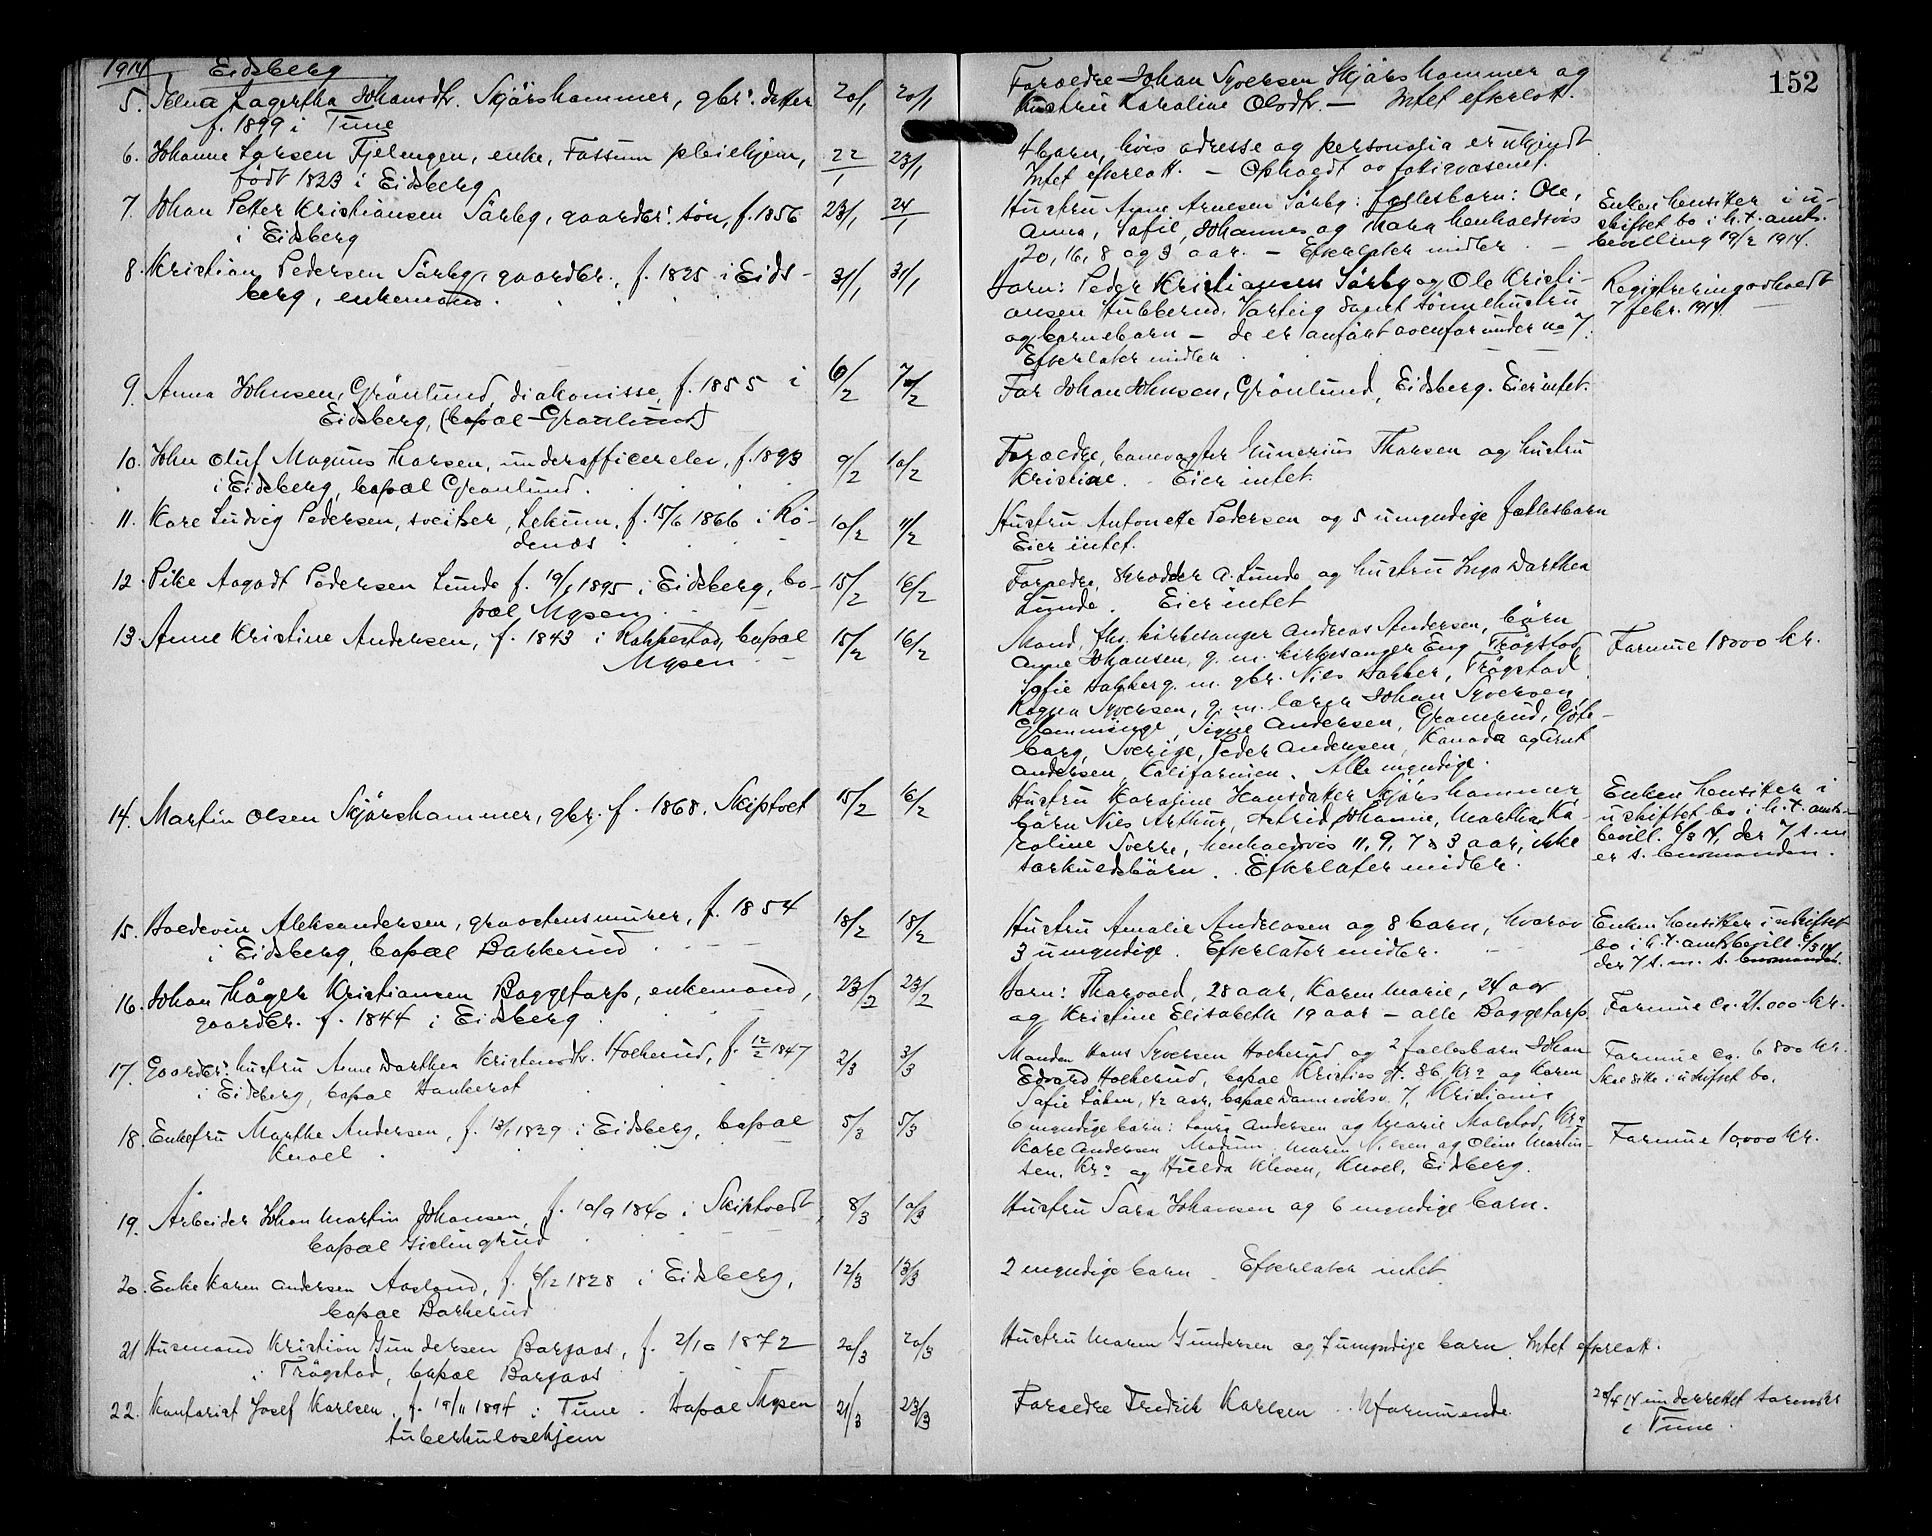 1914 Eidsberg
152
5. Lagertha Johansdtr. Skjörshammer, gbr's datter 20/1 20/1 Forældre Johan Syversen Skjörshammer og
f. 1899 i Tune hustru Karoline Olsdtr. — Intet efterlatt.
6. Johanne Larsen Fjelengen, enke, Fossum pleiehjem, 22/1 23/1 4 barn, hvis adresse og personalia er ukjendt
født 1823 i Eidsberg Intet efterlatt. — Opholdt av fattigvæsenet.
7. Johan Petter Kristiansen Sörby, gaardbr's sön, f. 1856 23/1 24/1 Hustru Anne Arnesen Sörby: fællesbarn: Ole, Enken hensitter i u-
i Eidsberg Anna, Sofie, Johannes og Thora henholdsvis skiftet bo i h.t. amts-
20, 16, 8 og 3 aar. — Efterlater midler. — bevilling 19/2 1914.
8. Kristian Pedersen Sörby, gaardbr., f. 1825 i Eids- 31/1 31/1 Barn: Peder Kristiansen Sörby og Ole Kristi- Registrering avholdt
berg, enkemand. ansen Hubberud, Varteig samt sönnehustru 7 febr. 1914.
og barnebarn — de er anfört ovenfor under no 7.
Efterlater midler.
9. Anna Johnsen, Grönlund, diakonisse, f. 1855 i 6/2 7/2 Far Johan Johnsen, Grönlund, Eidsberg. Eier intet.
Eidsberg, (bopæl Grönlund)
10. John Oluf Magnus Thorsen, underofficerelev, f. 1893 9/2 10/2 Forældre, banevogter Gunerius Thorsen og hustru
i Eidsberg, bopæl Grönlund. Kristine. Eier intet.
11. Kare Ludvig Pedersen, sveitser, Lekum, f. 15/6 1866 i Rö- 10/2 11/2 Hustru Antonette Pedersen og 5 umyndige fællesbarn
denæs Eier intet.
12. Pike Aagodt Pedersen Lunde f. 19/1 1895 i Eidsberg, bo- 15/2 16/2 Forældre, skrædder A. Lunde og hustru Inga Dorthea
pæl Mysen. Lunde. Eier intet
13. Anne Kristine Andersen, f. 1843 i Rakkestad, bopæl 15/2 16/2 Mand, fhv. kirkesanger Andreas Andersen, börn Formue 18000 kr.
Mysen — Anne Johansen, g. m. kirkesanger Eng Trögstad,
Sofie g. m. gbr. Nils Trögstad.
Ragna Syversen, g. m. lærer Johan Syversen
Glemminge, Signe Andersen, Gröte-
borg, Sverige, Peder Andersen, Kanada og Arnt
Andersen, Californien. Alle myndige.
14. Martin Olsen Skjörshammer, gbr. f. 1868, Skiptvet 15/2 16/2 Hustru Karoline Hansdatter Skjörshammer, Enken hensitter i
börn Nils Arthur, Astrid Johanne, Martha Ka- uskiftet bo i h.t. amts-
roline Sverre, henholdsvis 11, 9, 7 & 3 aar, ikke bevill. 6/3 14, der 7 s. m.
særkuldsbörn. Efterlater midler. er s. bumanden.
15. Aleksandersen, graastensmurer, f. 1854 18/2 18/2 Hustru Amalie Andreasen og 8 barn, hvorav Enken hensitter i uskiftet
i Eidsberg, bopæl Barkerud 3 umyndige. Efterlater midler. bo i h.t. amtsbevill. 6/3 14
der 7 s. m. s.
16. Johan Kristiansen Baggetorp, enkemand, 23/2 23/2 Barn: Thorvald, 28 aar, Karen Marie, 24 aar Formue ca. 21.000 kr.
gaardbr. f. 1844 i Eidsberg og Kristine Elisabeth 19 aar — alle Baggetorp.
17. Gaardbr's hustru Anne Dorthea Kristensdtr. Holkerud, f. 12/2 1847 2/3 3/3 Manden Hans Syversen Holkerud og 2 fællesbarn Johan Formue ca. 6 800 kr.
i Eidsberg, bopæl Edvard Holkerud, bopæl gt. 86 Kra og Karen Skal sitte i uskiftet bo.
Sofie 42 aar, bopæl 7, Kristiania
18. Enkefru Marthe Andersen, f. 13/1 1829 i Eidsberg, bopæl 5/3 5/3 6 myndige barn: Andersen og Marie Kra Formue 10,000 kr.
Knoll. Kare Andersen Modum, Maren Nilsen og Oline Martin-
sen, Kra og Hulda Kleven, Knoll, Eidsberg.
19. Arbeider Johan Martin Johansen, f. 10/9 1840 i Skiptvedt, 8/3 10/3 Hustru Sara Johansen og 6 myndige barn.
bopæl
20. Enke Karen Andersen Aasland, f. 6/12 1828 i Eidsberg, 12/3 13/3 2 myndige barn. Efterlater intet.
bopæl Barkerud
21 Husmand Kristian Gundersen Borgaas, f. 2/10 1872 20/3 20/3 Hustru Maren Gundersen og 7 umyndige barn. Intet efterlatt.
i Trögstad, bopæl Borgaas
22. Kontorist Josef Karlsen, f. 19/11 1894 i Tune. Bopæl Mysen 21/3 23/3 Forældre Fredrik Karlsen. Uformuende 28/4 14 underrettet
tuberkulosehjem i Tune.